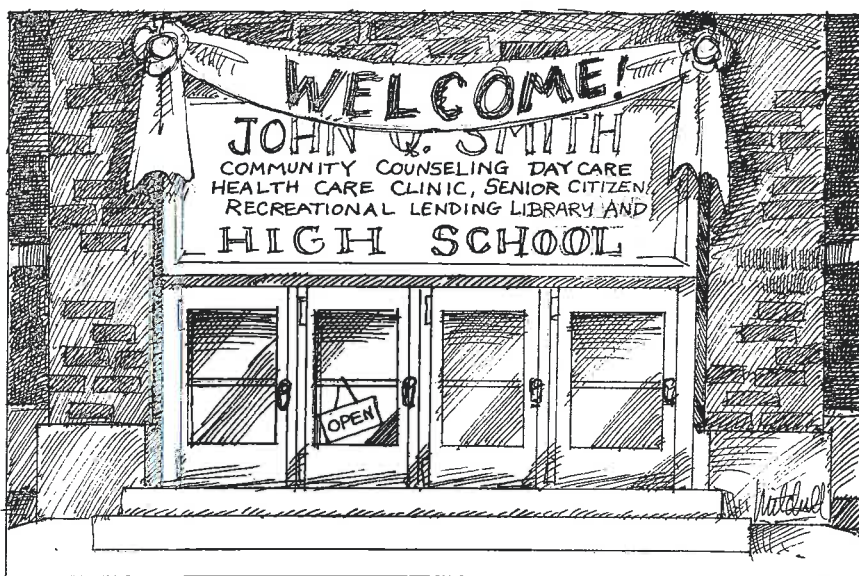 WELCOME!
JOHN Q. SMITH
COMMUNITY COUNSELING DAY CARE
HEALTH CARE CLINIC, SENIOR CITIZEN
RECREATIONAL LENDING LIBRARY AND
HIGH SCHOOL
OPEN